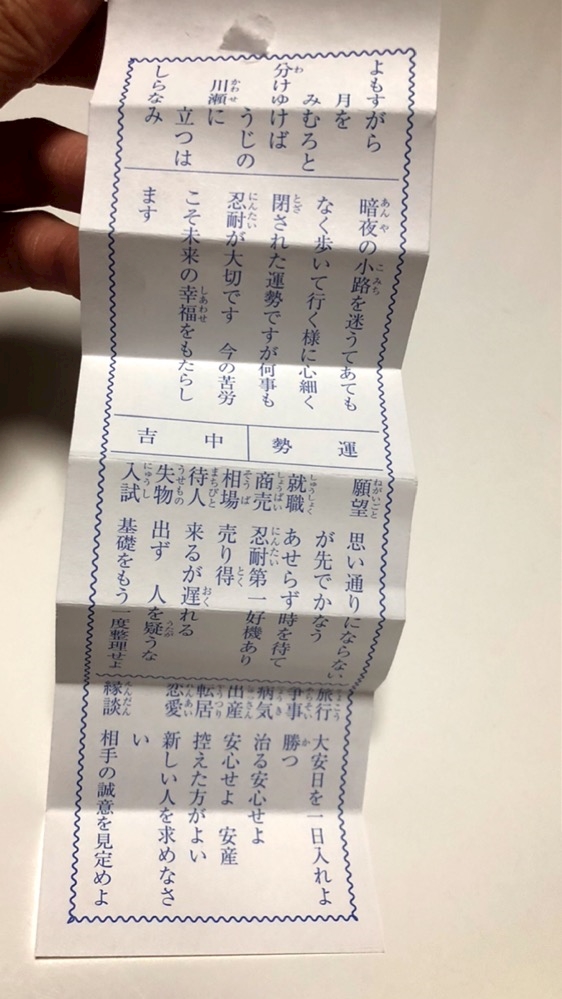 よもすがら
月を
みむろと
分けゆけば
うじの
川瀬に
立つは
しらなみ
暗夜の小路を迷うてあても
なく歩いて行く様に心細く
閉された運勢ですが何事も
忍耐が大切です 今の苦労
こそ未来の幸福をもたらし
ます
運勢 中吉
願望 思い通りにならない
が先でかなう
就職 あせらず時を待て
商売 忍耐第一好機あり
相場 売り得
待人 来るが遅れる
失物 出ず 人を疑うな
入試 基礎をもう一度整理せよ
旅行 大安日を一日入れよ
争事 勝つ
病気 治る安心せよ
出産 安心せよ 安産
転居 控えた方がよい
恋愛 新しい人を求めなさ
い
縁談 相手の誠意を見定めよ